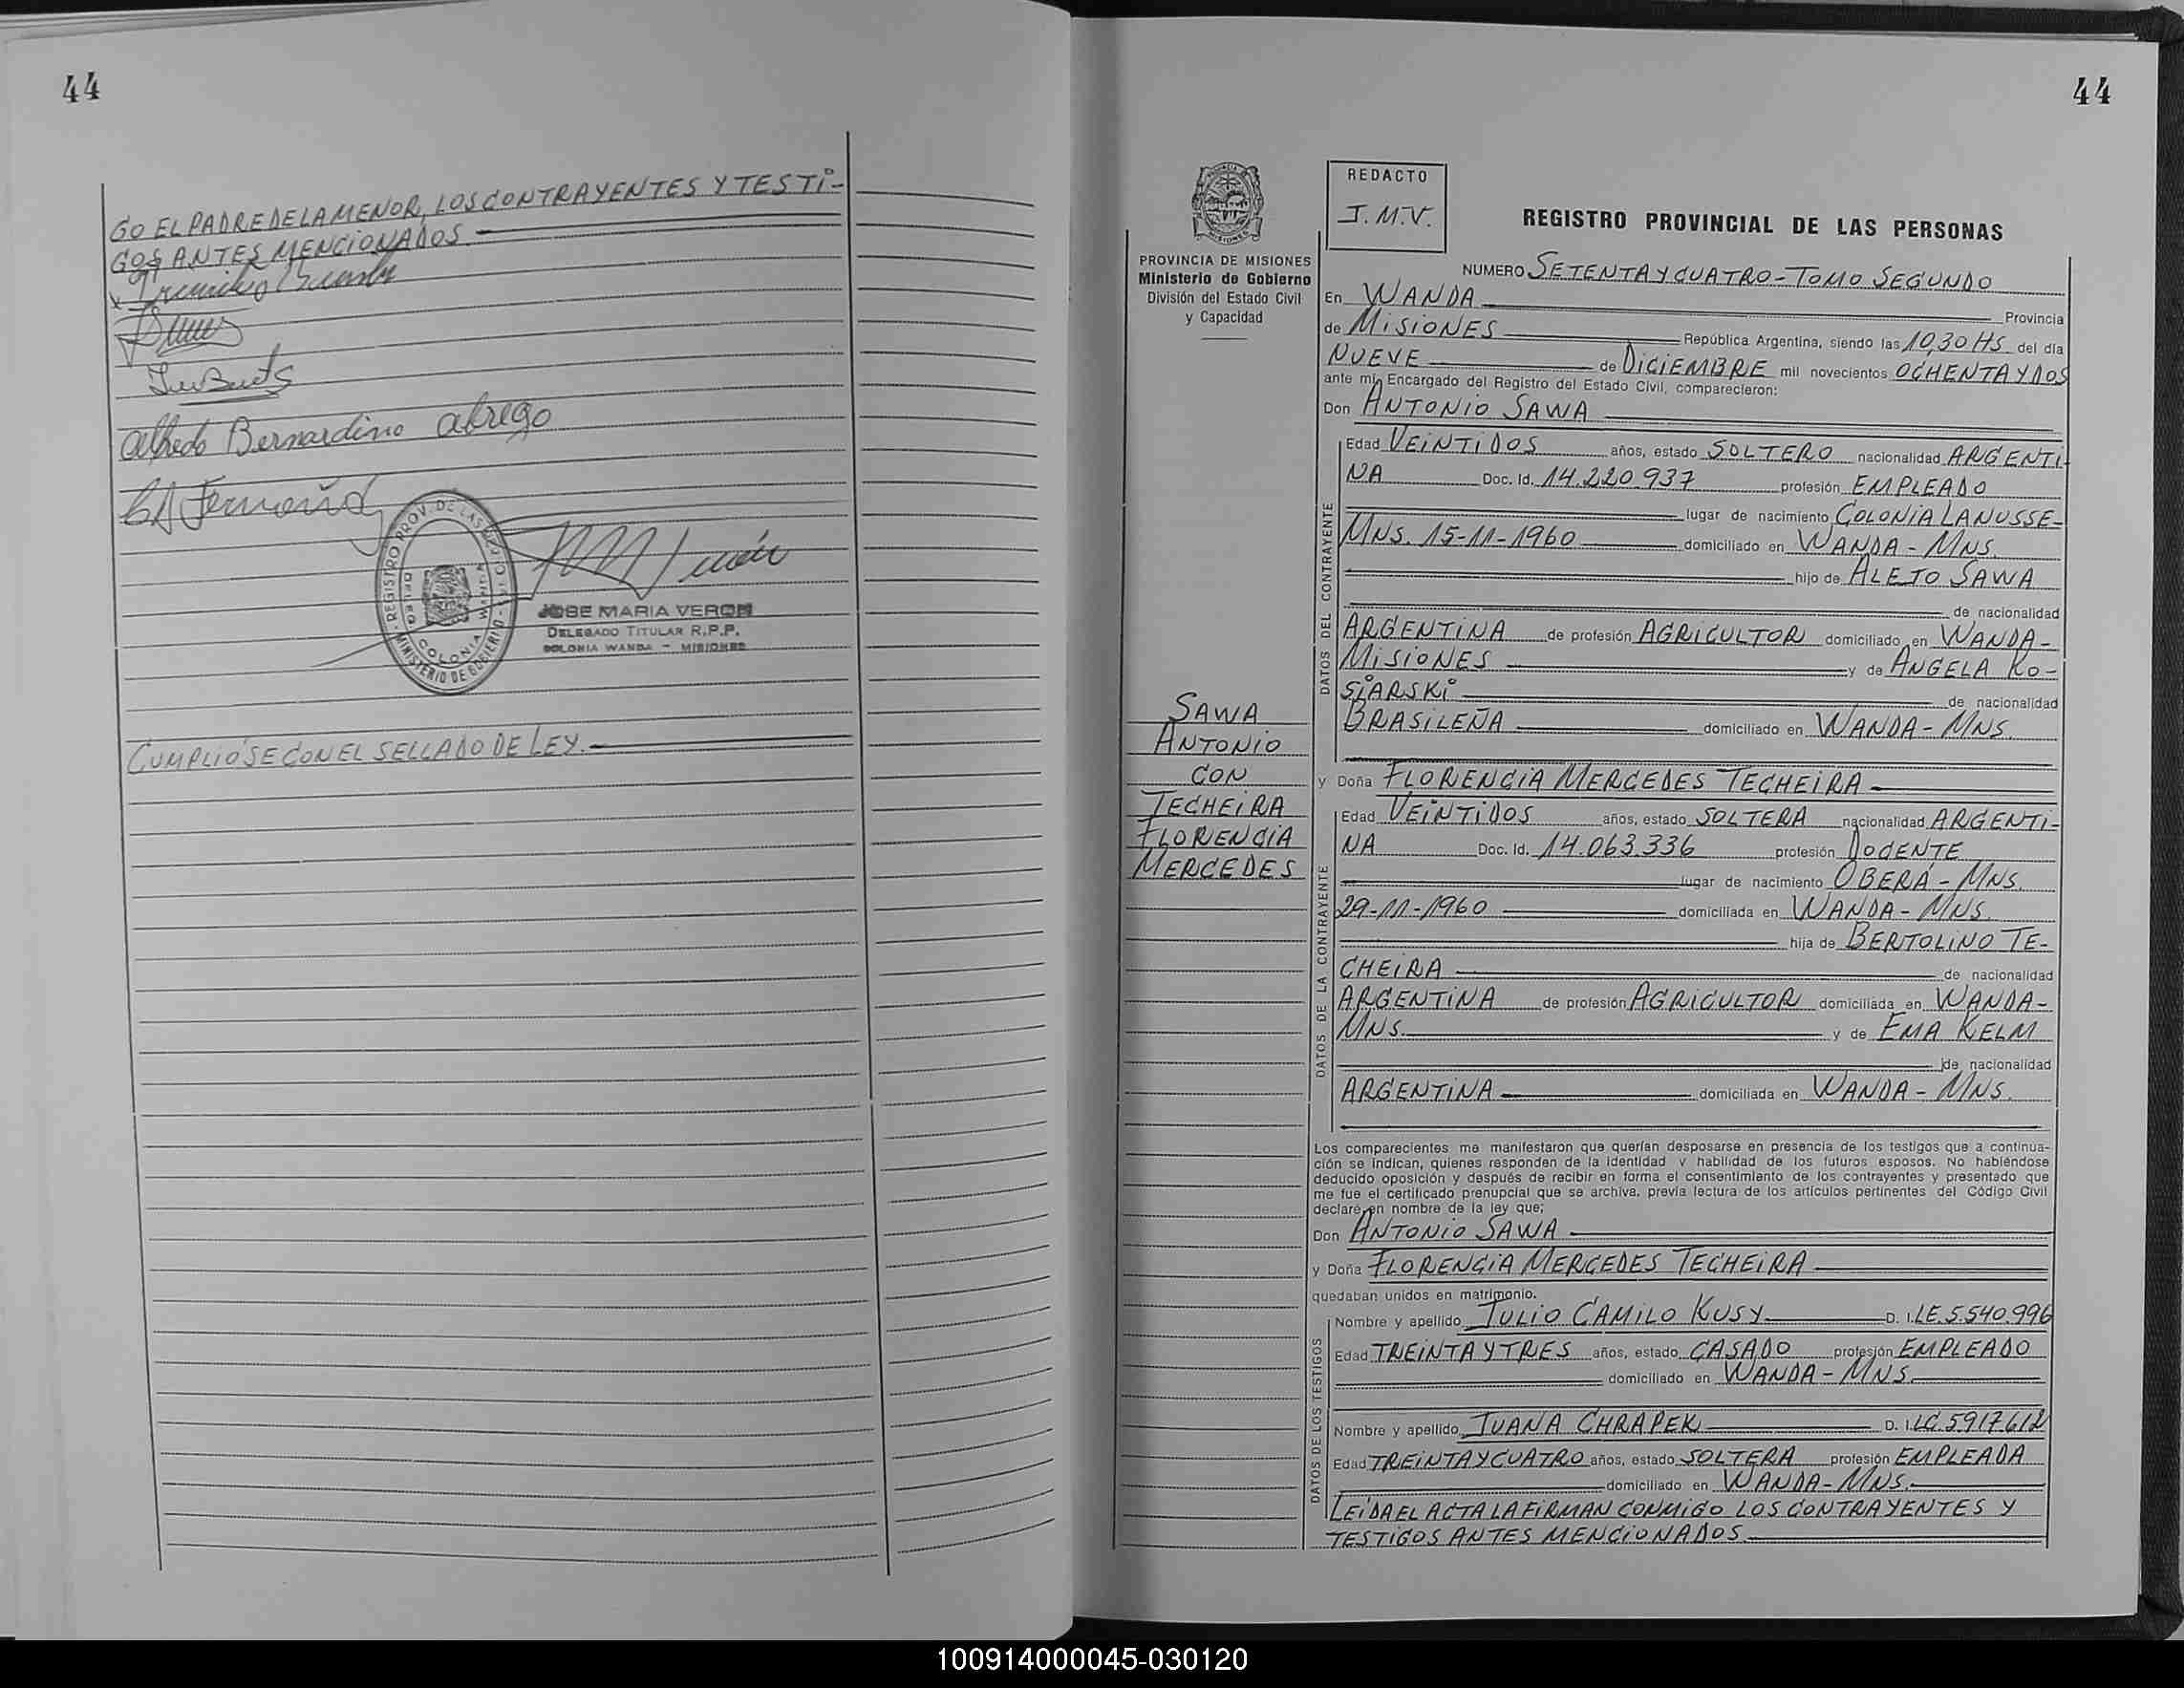 44
GO EL PADRE DE LA MENOR, LOS CONTRAYENTES Y TESTI-
GOS ANTES MENCIONADOS
Alfredo Bernardino Abrego
REGISTRO PROV. DE LAS
DELEG. COLONIA WANDA
MINISTERIO DE GOBIERNO
JOSE MARIA VERON
DELEGADO TITULAR R.P.P.
COLONIA WANDA - MISIONES
CUMPLIÓSE CON EL SELLADO DE LEY.
44
PROVINCIA DE MISIONES
Ministerio de Gobierno
División del Estado Civil
y Capacidad
REDACTO
J.M.V.
REGISTRO PROVINCIAL DE LAS PERSONAS
NUMERO SETENTA Y CUATRO - TOMO SEGUNDO
En WANDA Provincia
de MISIONES República Argentina, siendo las 10,30 HS del día
NUEVE de DICIEMBRE mil novecientos OCHENTA Y DOS
ante mi, Encargado del Registro del Estado Civil, comparecieron:
Don ANTONIO SAWA
DATOS DEL CONTRAYENTE
Edad VEINTIDOS años, estado SOLTERO nacionalidad ARGENTI-
NA Doc. Id. 14.220.937 profesión EMPLEADO
lugar de nacimiento COLONIA LANUSSE-
MNS. 15-11-1960 domiciliado en WANDA - MNS.
hijo de ALEJO SAWA
de nacionalidad
ARGENTINA de profesión AGRICULTOR domiciliado en WANDA-
MISIONES y de ANGELA KO-
SIARSKI de nacionalidad
BRASILEÑA domiciliado en WANDA - MNS.
SAWA
ANTONIO
CON
TECHEIRA
FLORENCIA
MERCEDES
y Doña FLORENCIA MERCEDES TECHEIRA
DATOS DE LA CONTRAYENTE
Edad VEINTIDOS años, estado SOLTERA nacionalidad ARGENTI-
NA Doc. Id. 14.063.336 profesión DOCENTE
lugar de nacimiento OBERÁ - MNS.
29-11-1960 domiciliada en WANDA - MNS.
hija de BERTOLINO TE-
CHEIRA de nacionalidad
ARGENTINA de profesión AGRICULTOR domiciliada en WANDA-
MNS. y de EMA KELM
de nacionalidad
ARGENTINA domiciliada en WANDA - MNS.
Los comparecientes me manifestaron que querían desposarse en presencia de los testigos que a continua-
ción se indican, quienes responden de la identidad y habilidad de los futuros esposos. No habiéndose
deducido oposición y después de recibir en forma el consentimiento de los contrayentes y presentado que
me fue el certificado prenupcial que se archiva, previa lectura de los artículos pertinentes del Código Civil
declaré en nombre de la ley que;
Don ANTONIO SAWA
y Doña FLORENCIA MERCEDES TECHEIRA
quedaban unidos en matrimonio.
DATOS DE LOS TESTIGOS
Nombre y apellido JULIO CAMILO KUSY D. I. LE. 5.540.996
Edad TREINTA Y TRES años, estado CASADO profesión EMPLEADO
domiciliado en WANDA - MNS.
Nombre y apellido JUANA CHRAPEK D. I. LC. 5917612
Edad TREINTA Y CUATRO años, estado SOLTERA profesión EMPLEADA
domiciliado en WANDA - MNS.
LEIDA EL ACTA LA FIRMAN CONMIGO LOS CONTRAYENTES Y
TESTIGOS ANTES MENCIONADOS.
100914000045-030120